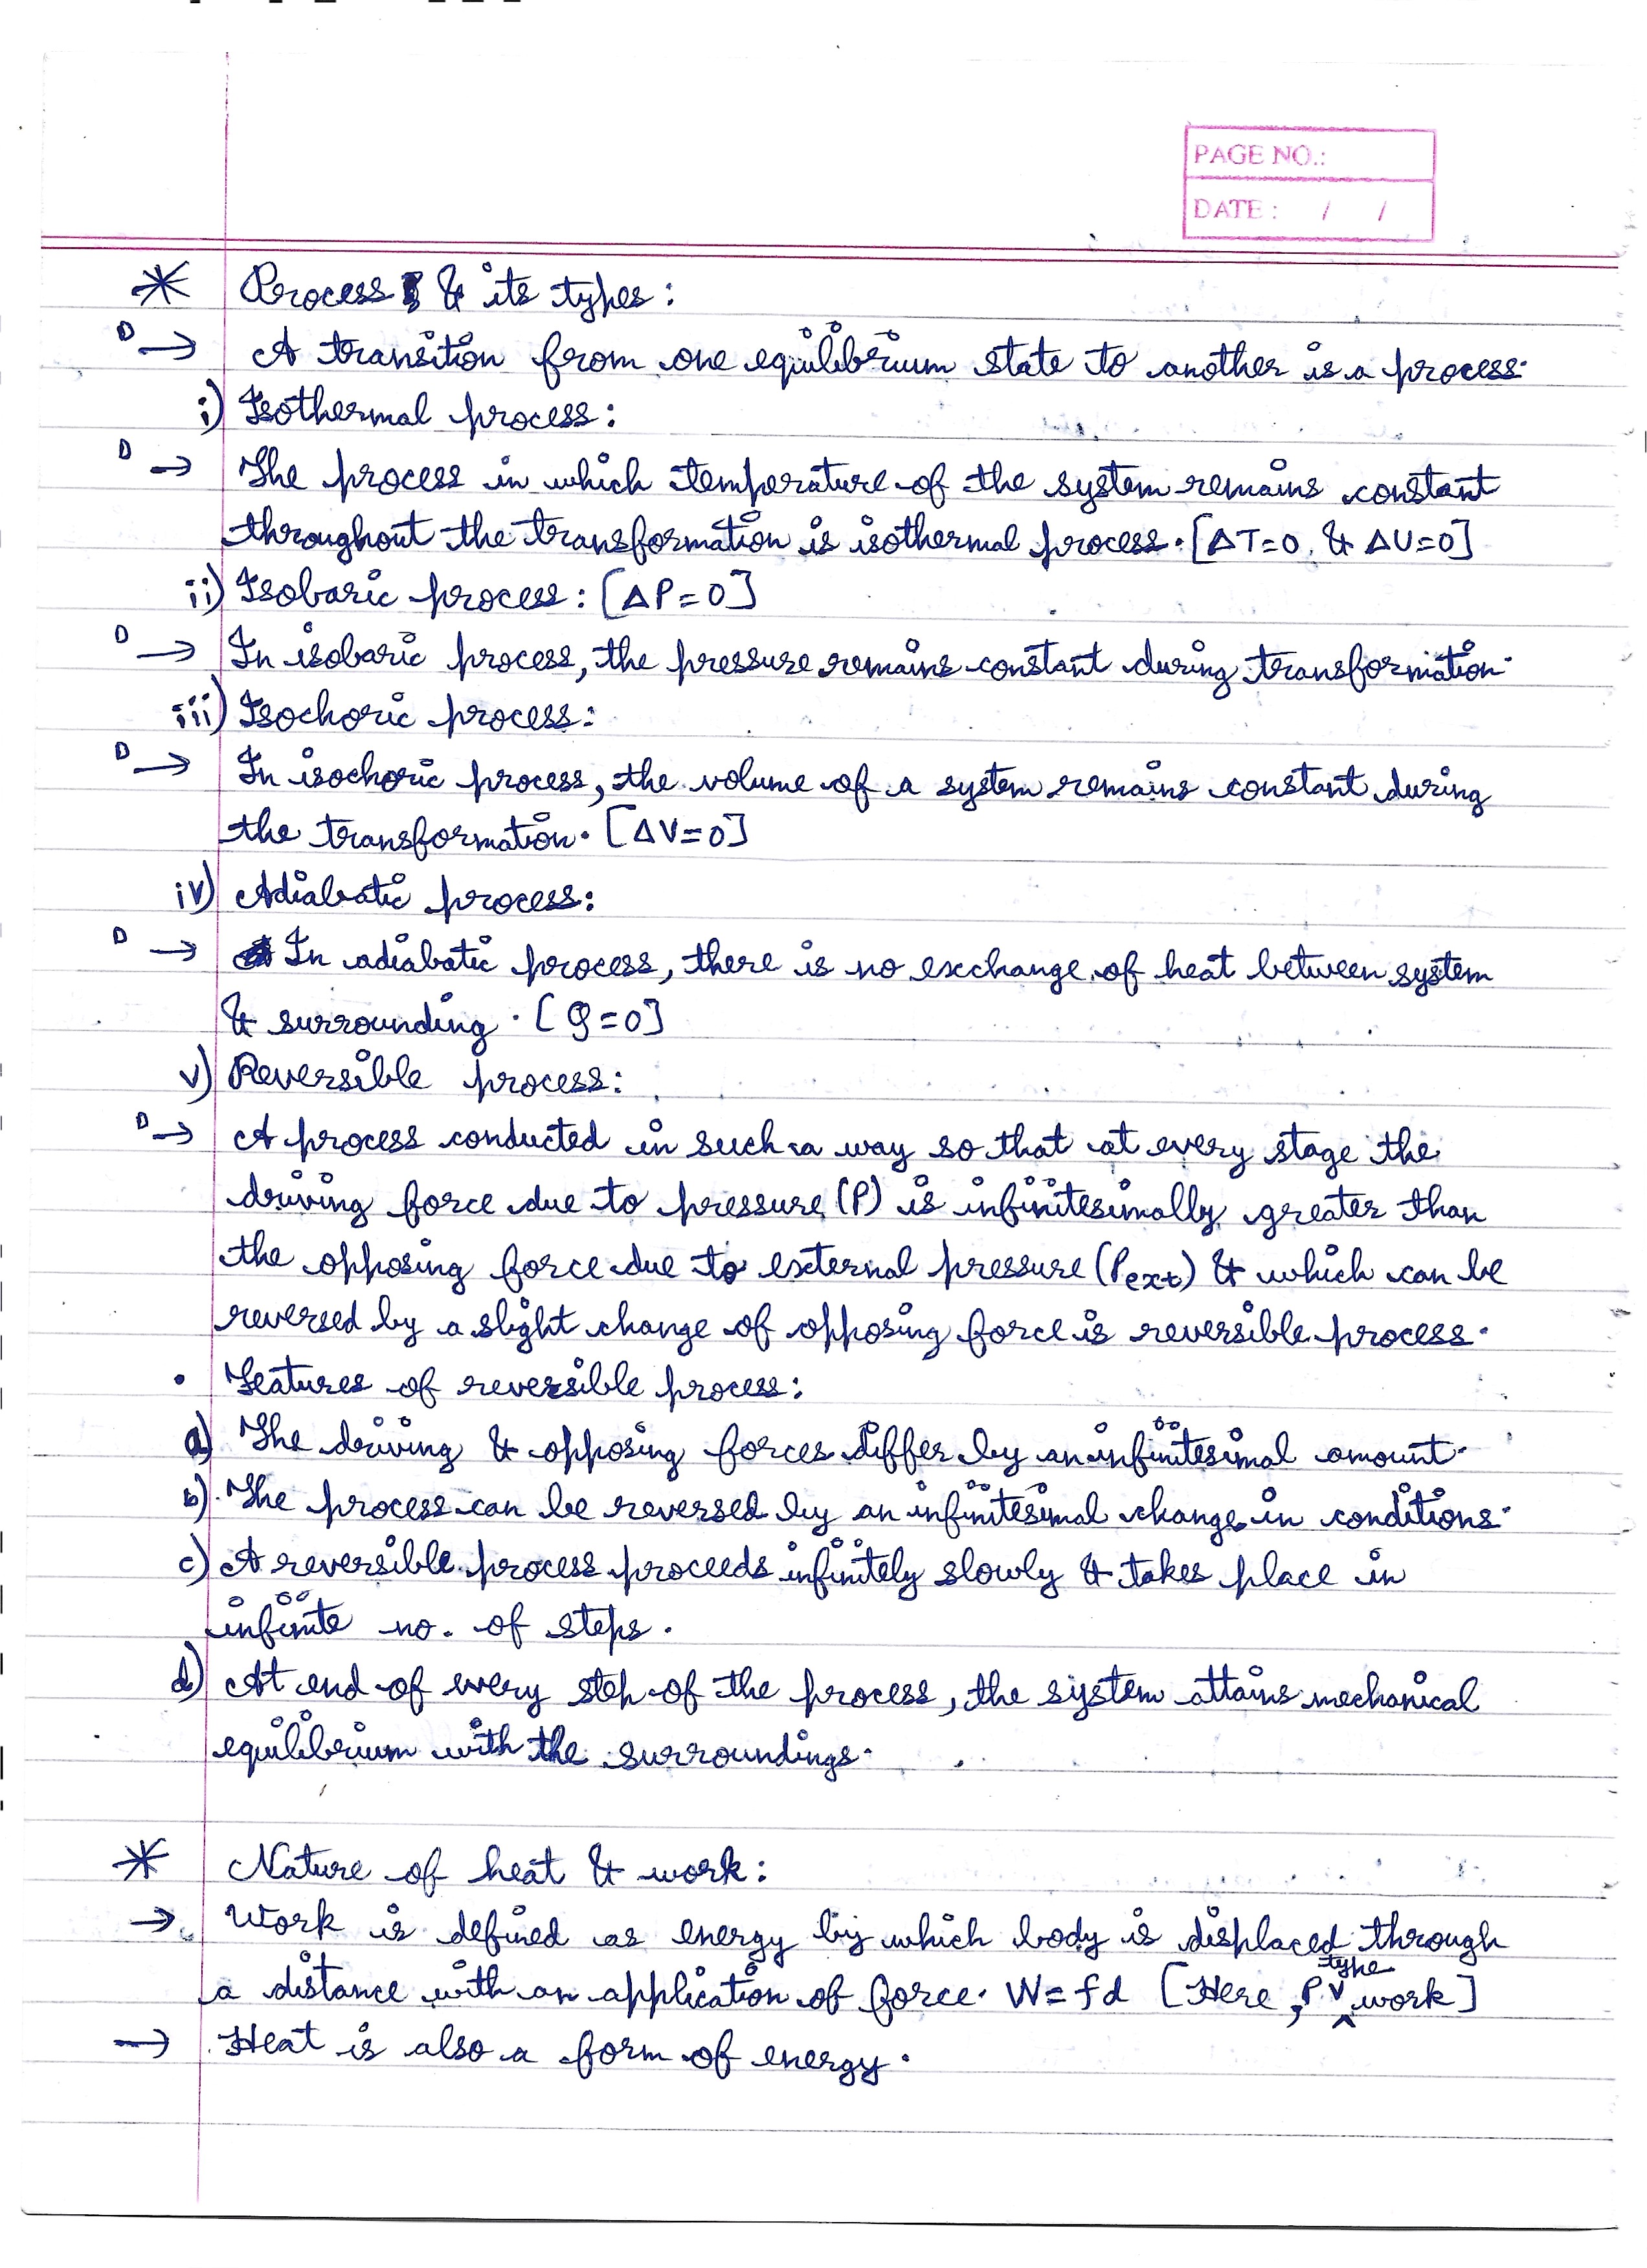 PAGE NO.:
DATE : / /
* Process & its types:
D → A transition from one equilibrium state to another is a process.
i) Isothermal process:
D → The process in which temperature of the system remains constant
throughout the transformation is isothermal process. [ΔT=0 & ΔU=0]
ii) Isobaric process: [ΔP=0]
D → In isobaric process, the pressure remains constant during transformation.
iii) Isochoric process:
D → In isochoric process, the volume of a system remains constant during
the transformation. [ΔV=0]
iv) Adiabatic process:
D → In adiabatic process, there is no exchange of heat between system
& surrounding. [Q=0]
v) Reversible process:
D → A process conducted in such a way so that at every stage the
driving force due to pressure (P) is infinitesimally greater than
the opposing force due to external pressure (Pext) & which can be
reversed by a slight change of opposing force is reversible process.
• Features of reversible process:
a) The driving & opposing forces differ by an infinitesimal amount.
b) The process can be reversed by an infinitesimal change in conditions.
c) A reversible process proceeds infinitely slowly & takes place in
infinite no. of steps.
d) At end of every step of the process, the system attains mechanical
equilibrium with the surroundings.
* Nature of heat & work:
→ Work is defined as energy by which body is displaced through
a distance with an application of force. W=fd [Here, PV type work]
→ Heat is also a form of energy.